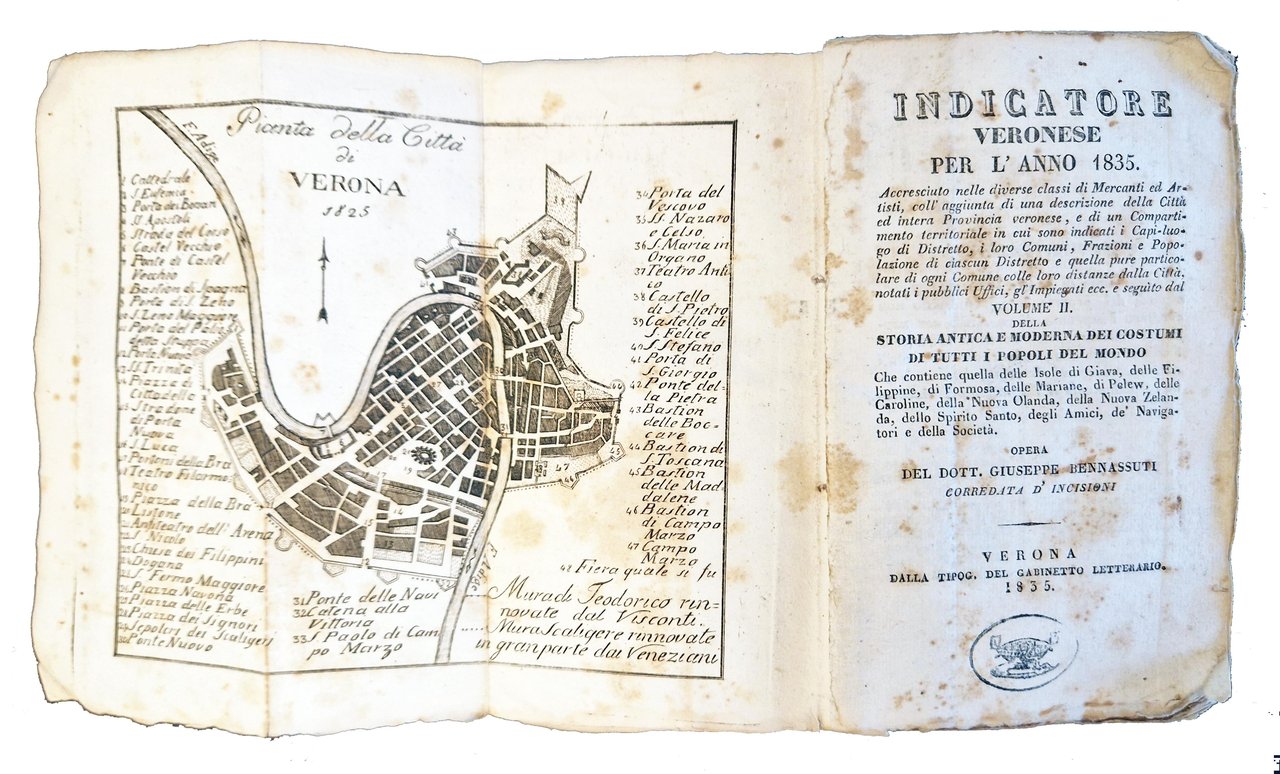 Pianta della Città
di
VERONA
1825
E Adige
1 Cattedrale
2 S. Eufemia
3 Porta dei Borsari
4 SS. Apostoli
5 Strada del Corso
6 Castel Vecchio
7 Ponte di Castel
Vecchio
8 Bastion di Spagna
9 Porta di S. Zeno
10 S. Zeno Maggiore
11 Porta del Palio
detta Stuppa
12 Porta Nuova
13 SS. Trinità
14 Piazza di
Cittadella
15 Stradone
di Porta
Nuova
16 S. Luca
17 Portoni della Bra
18 Teatro Filarmo
nico
19 Piazza della Bra
20 Listone
21 Anfiteatro dell'Arena
22 S. Nicolò
23 Chiesa dei Filippini
24 Dogana
25 S. Fermo Maggiore
26 Piazza Navona
27 Piazza delle Erbe
28 Piazza dei Signori
29 Sepolcri dei Scaligeri
30 Ponte Nuovo
31 Ponte delle Navi
32 Catena alla
Vittoria
33 S. Paolo di Cam
po Marzo
34 Porta del
Vescovo
35 SS. Nazaro
e Celso.
36 S. Maria in
Organo
37 Teatro Anti
co
38 Castello
di S. Pietro
39 Castello di
S. Felice
40 S. Stefano
41 Porta di
S. Giorgio
42 Ponte del-
la Pietra
43 Bastion
delle Boc-
care
44 Bastion di
S. Toscana
45 Bastion
delle Mad
dalene
46 Bastion
di Campo
Marzo
47 Campo
Marzo
42 Fiera quale si fu
Mura di Teodorico rin=
novate dai Visconti.
Mura Scaligere rinnovate
in gran parte dai Veneziani
INDICATORE
VERONESE
PER L'ANNO 1835.
Accresciuto nelle diverse classi di Mercanti ed Ar-
tisti, coll'aggiunta di una descrizione della Città
ed intera Provincia veronese, e di un Comparti-
mento territoriale in cui sono indicati i Capi-luo-
go di Distretto, i loro Comuni, Frazioni e Popo-
lazione di ciascun Distretto e quella pure partico-
lare di ogni Comune colle loro distanze dalla Città,
notati i pubblici Uffici, gl'Impiegati ecc. e seguito dal
VOLUME II.
DELLA
STORIA ANTICA E MODERNA DEI COSTUMI
DI TUTTI I POPOLI DEL MONDO
Che contiene quella delle Isole di Giava, delle Fi-
lippine, di Formosa, delle Mariane, di Pelew, delle
Caroline, della Nuova Olanda, della Nuova Zelan-
da, dello Spirito Santo, degli Amici, de' Naviga-
tori e della Società.
OPERA
DEL DOTT. GIUSEPPE BENNASSUTI
CORREDATA D'INCISIONI
VERONA
DALLA TIPOG. DEL GABINETTO LETTERARIO.
1835.